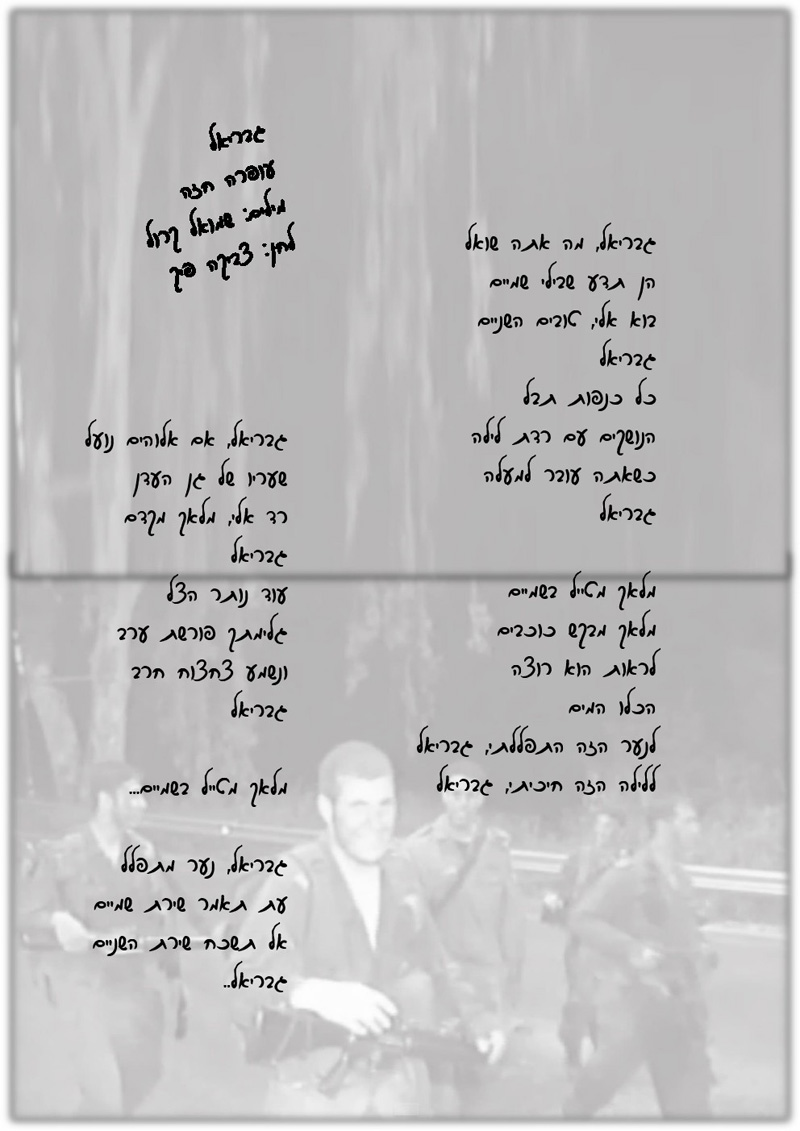 גבריאל
עופרה חזה
מילים: שמואל קרול
לחן: צביקה פיק
גבריאל, מה אתה שואל
הן תדע שבילי שמיים
בוא אלי, טובים השניים
גבריאל
כל כנפות תבל
הנושקים עם רדת לילה
כשאתה עובר למעלה
גבריאל
מלאך מטייל בשמיים
מלאך מבקש כוכבים
לראות הוא רוצה
הכלו המים
לנער הזה התפללתי, גבריאל
ללילה הזה חיכיתי, גבריאל
גבריאל, אם אלוהים נועל
שעריו של גן העדן
רד אלי, מלאך מקדם
גבריאל
עוד נותר הצל
גלימתך פורשת ערב
ונשמע צחצוח חרב
גבריאל
מלאך מטייל בשמיים...
גבריאל, נער מתפלל
עת תאמר שירת שמיים
אל תשכח שירת השניים
גבריאל..